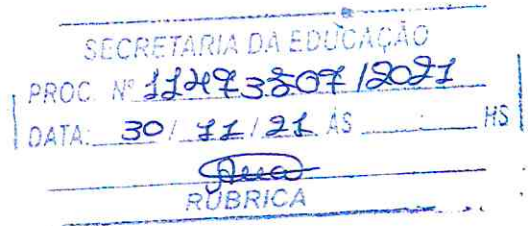 SECRETARIA DA EDUCAÇÃO
PROC. Nº 11473207/2021
DATA: 30/11/21 ÀS ______ HS
RUBRICA